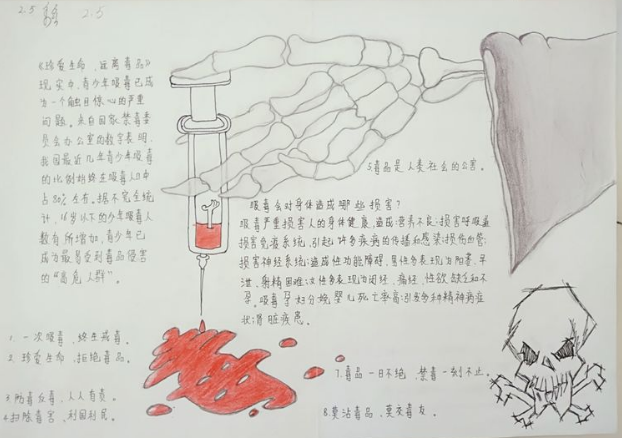 2.5
2.5
《珍爱生命、远离毒品》
现实中,青少年吸毒已成
为一个触目惊心的严重
问题。来自国家禁毒委
员会办公室的数字表明,
我国最近几年青少年吸毒
的比例始终在吸毒人口中
占80%左右。据不完全统
计,16岁以下的少年吸毒人
数有所增加,青少年已
成为最易受到毒品侵害
的“高危人群”。
1. 一次吸毒、终生戒毒。
2. 珍爱生命、拒绝毒品。
3.防毒反毒,人人有责。
4.扫除毒害、利国利民。
毒品是人类社会的公害。
吸毒会对身体造成哪些损害?
吸毒严重损害人的身体健康,造成:营养不良;损害呼吸道
损害免疫系统,引起许多疾病的传播和感染;损伤血管;
损害神经系统;造成性功能障碍,男性多表现为阳萎、早
泄、射精困难;女性多表现为闭经、痛经、性欲缺乏和不
孕。吸毒孕妇分娩婴儿死亡率高;引发多种精神病症
状;肾脏疾患。
7.毒品一日不绝,禁毒一刻不止。
8.莫沾毒品、莫交毒友。